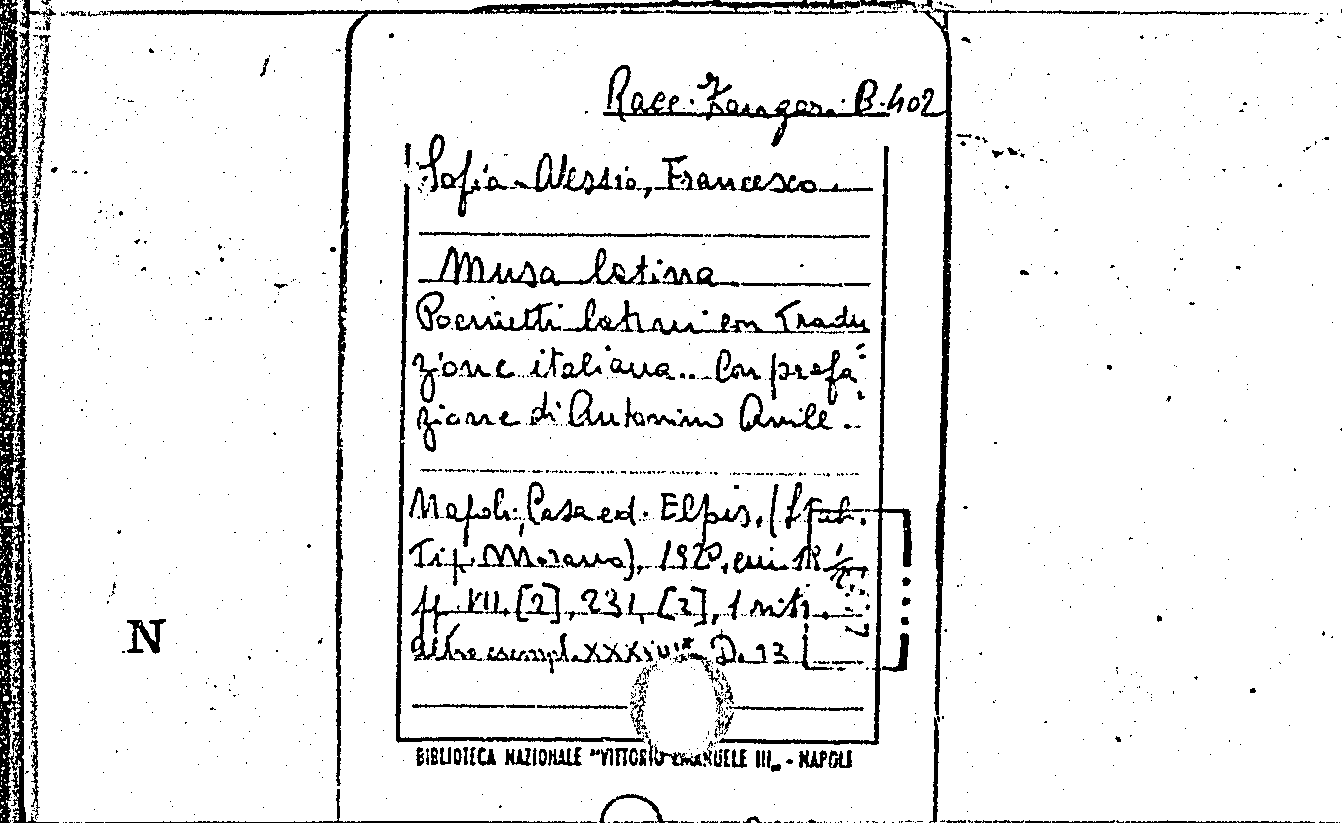 Racc. Zangari B. 402
Sofia-Alessio, Francesco.
Musa latina
Poemetti latini con Tradu
zione italiana.. Con prefa-
zione di Antonino Anile.
Napoli, Casa ed. Elpis, (Stab.
Tip. Morano), 1920, cm. 18
pp. VII, [2], 231, [2], 1 ritr.
altro esempl. D. 13
N
BIBLIOTECA NAZIONALE "VITTORIO EMANUELE III„ - NAPOLI